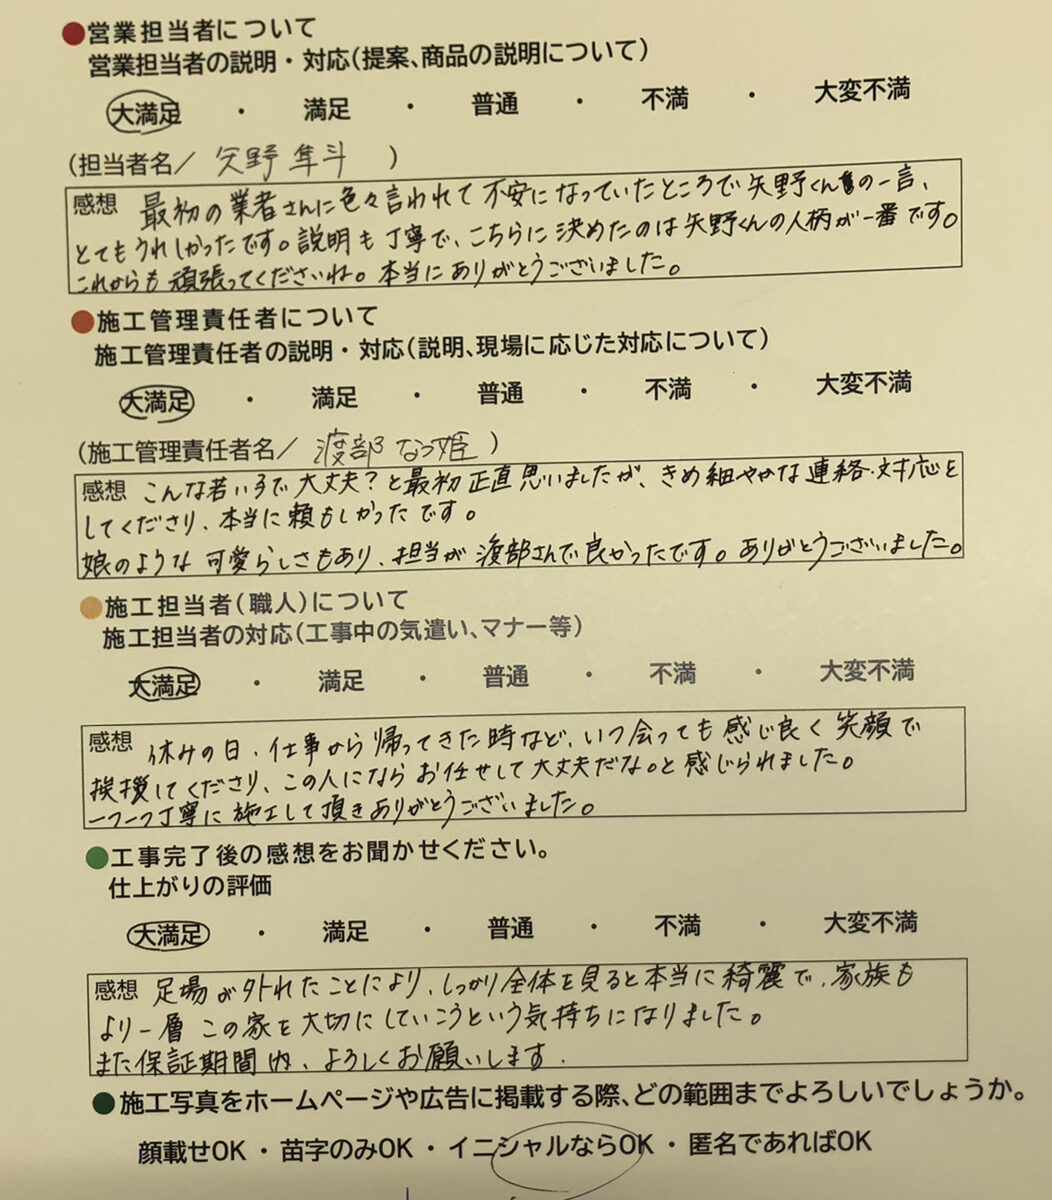 ●営業担当者について
営業担当者の説明・対応(提案、商品の説明について)
大満足 ・ 満足 ・ 普通 ・ 不満 ・ 大変不満
(担当者名/ 矢野 隼斗 )
感想 最初の業者さんに色々言われて不安になっていたところで矢野くんの一言、
とてもうれしかったです。説明も丁寧で、こちらに決めたのは矢野くんの人柄が一番です。
これからも頑張ってくださいね。本当にありがとうございました。
●施工管理責任者について
施工管理責任者の説明・対応(説明、現場に応じた対応について)
大満足 ・ 満足 ・ 普通 ・ 不満 ・ 大変不満
(施工管理責任者名/ 渡部 なつ姫 )
感想 こんな若い子で大丈夫?と最初正直思いましたが、きめ細やかな連絡・対応を
してくださり、本当に頼もしかったです。
娘のような可愛らしさもあり、担当が渡部さんで良かったです。ありがとうございました。
●施工担当者(職人)について
施工担当者の対応(工事中の気遣い、マナー等)
大満足 ・ 満足 ・ 普通 ・ 不満 ・ 大変不満
感想 休みの日、仕事から帰ってきた時など、いつ会っても感じ良く笑顔で
挨拶してくださり、この人にならお任せして大丈夫だな。と感じられました。
一つ一つ丁寧に施工して頂きありがとうございました。
●工事完了後の感想をお聞かせください。
仕上がりの評価
大満足 ・ 満足 ・ 普通 ・ 不満 ・ 大変不満
感想 足場が外れたことにより、しっかり全体を見ると本当に綺麗で、家族も
より一層この家を大切にしていこうという気持ちになりました。
また保証期間内、よろしくお願いします。
●施工写真をホームページや広告に掲載する際、どの範囲までよろしいでしょうか。
顔載せOK・苗字のみOK・イニシャルならOK・匿名であればOK